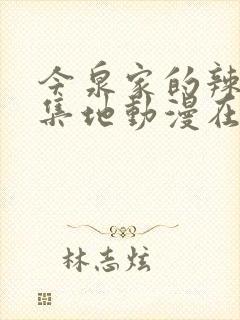 今泉家的辣
集地動漫在
林志炫